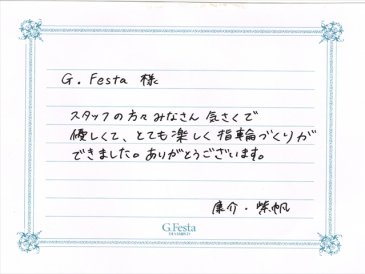 G. Festa 様
スタッフの方々みなさん 気さくで
優しくて、とても楽しく指輪づくりが
できました。ありがとうございます。
康介・紫帆
G.Festa